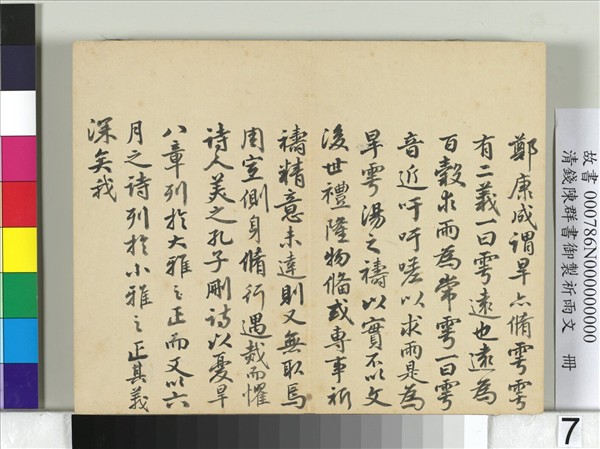 鄭康成謂旱亦脩雩雩
有二義一曰雩遠也遠為
百穀求雨為常雩一曰雩
音近吁吁嗟以求雨是為
旱雩湯之禱以實不以文
後世禮隆物備或專事祈
禱精意未達則又無取焉
周宣側身脩行遇烖而懼
詩人美之孔子刪詩以憂旱
八章列於大雅之正而又以六
月之詩列於小雅之正其義
深矣哉
故書 000786N000000000
清錢陳群書御製祈雨文 冊
7